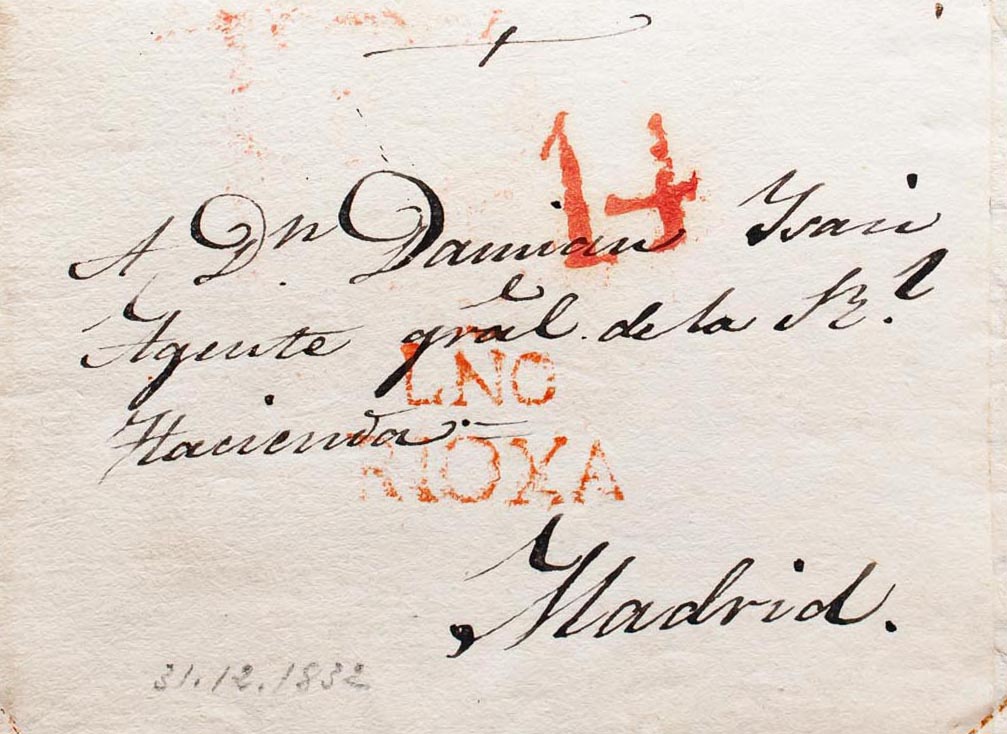 14
A Dn. Damian Ysari
Agente gral. de la Rl.
Hacienda.=
LNO
RIOXA
Madrid.
31.12.1832